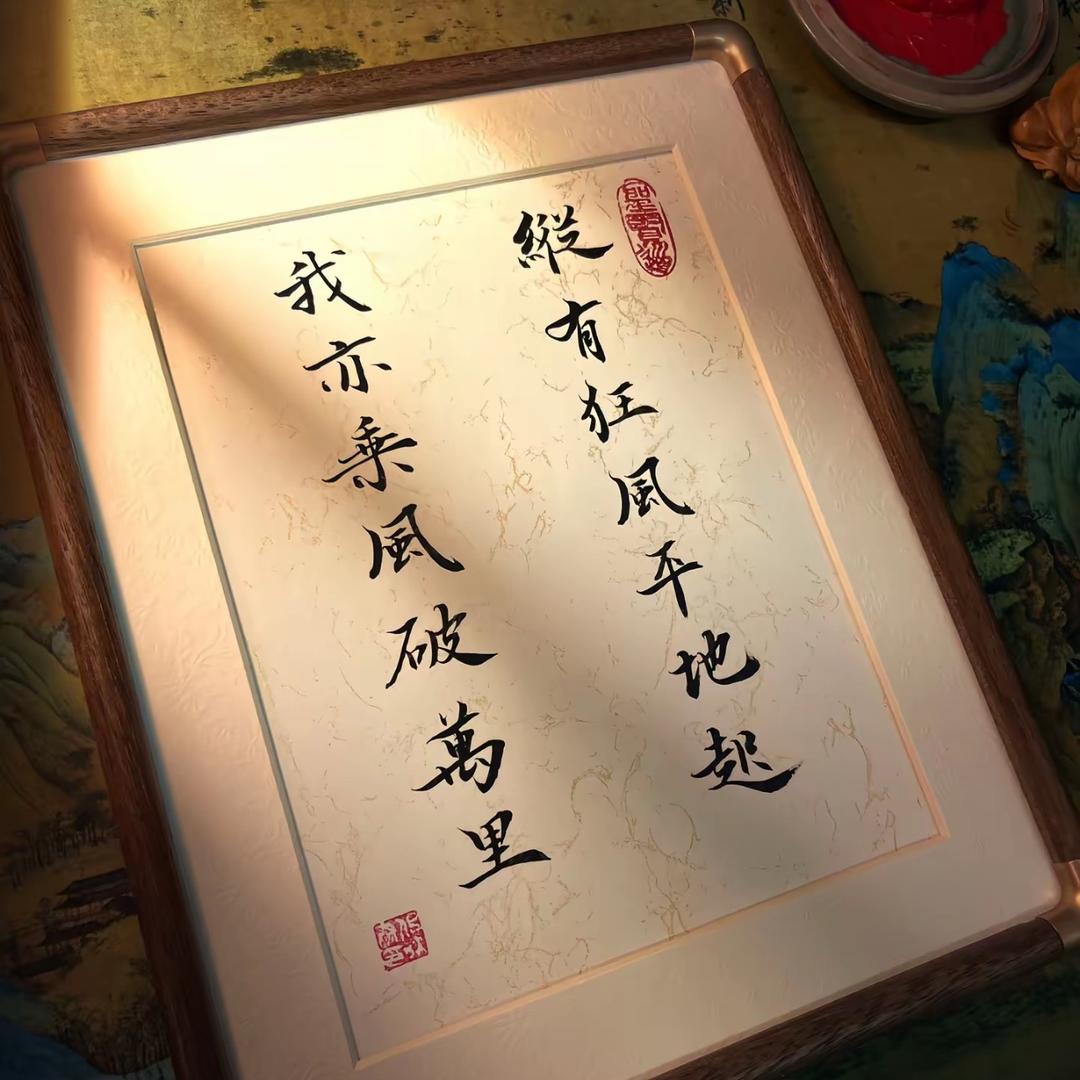 縱有狂風平地起
我亦乘風破萬里